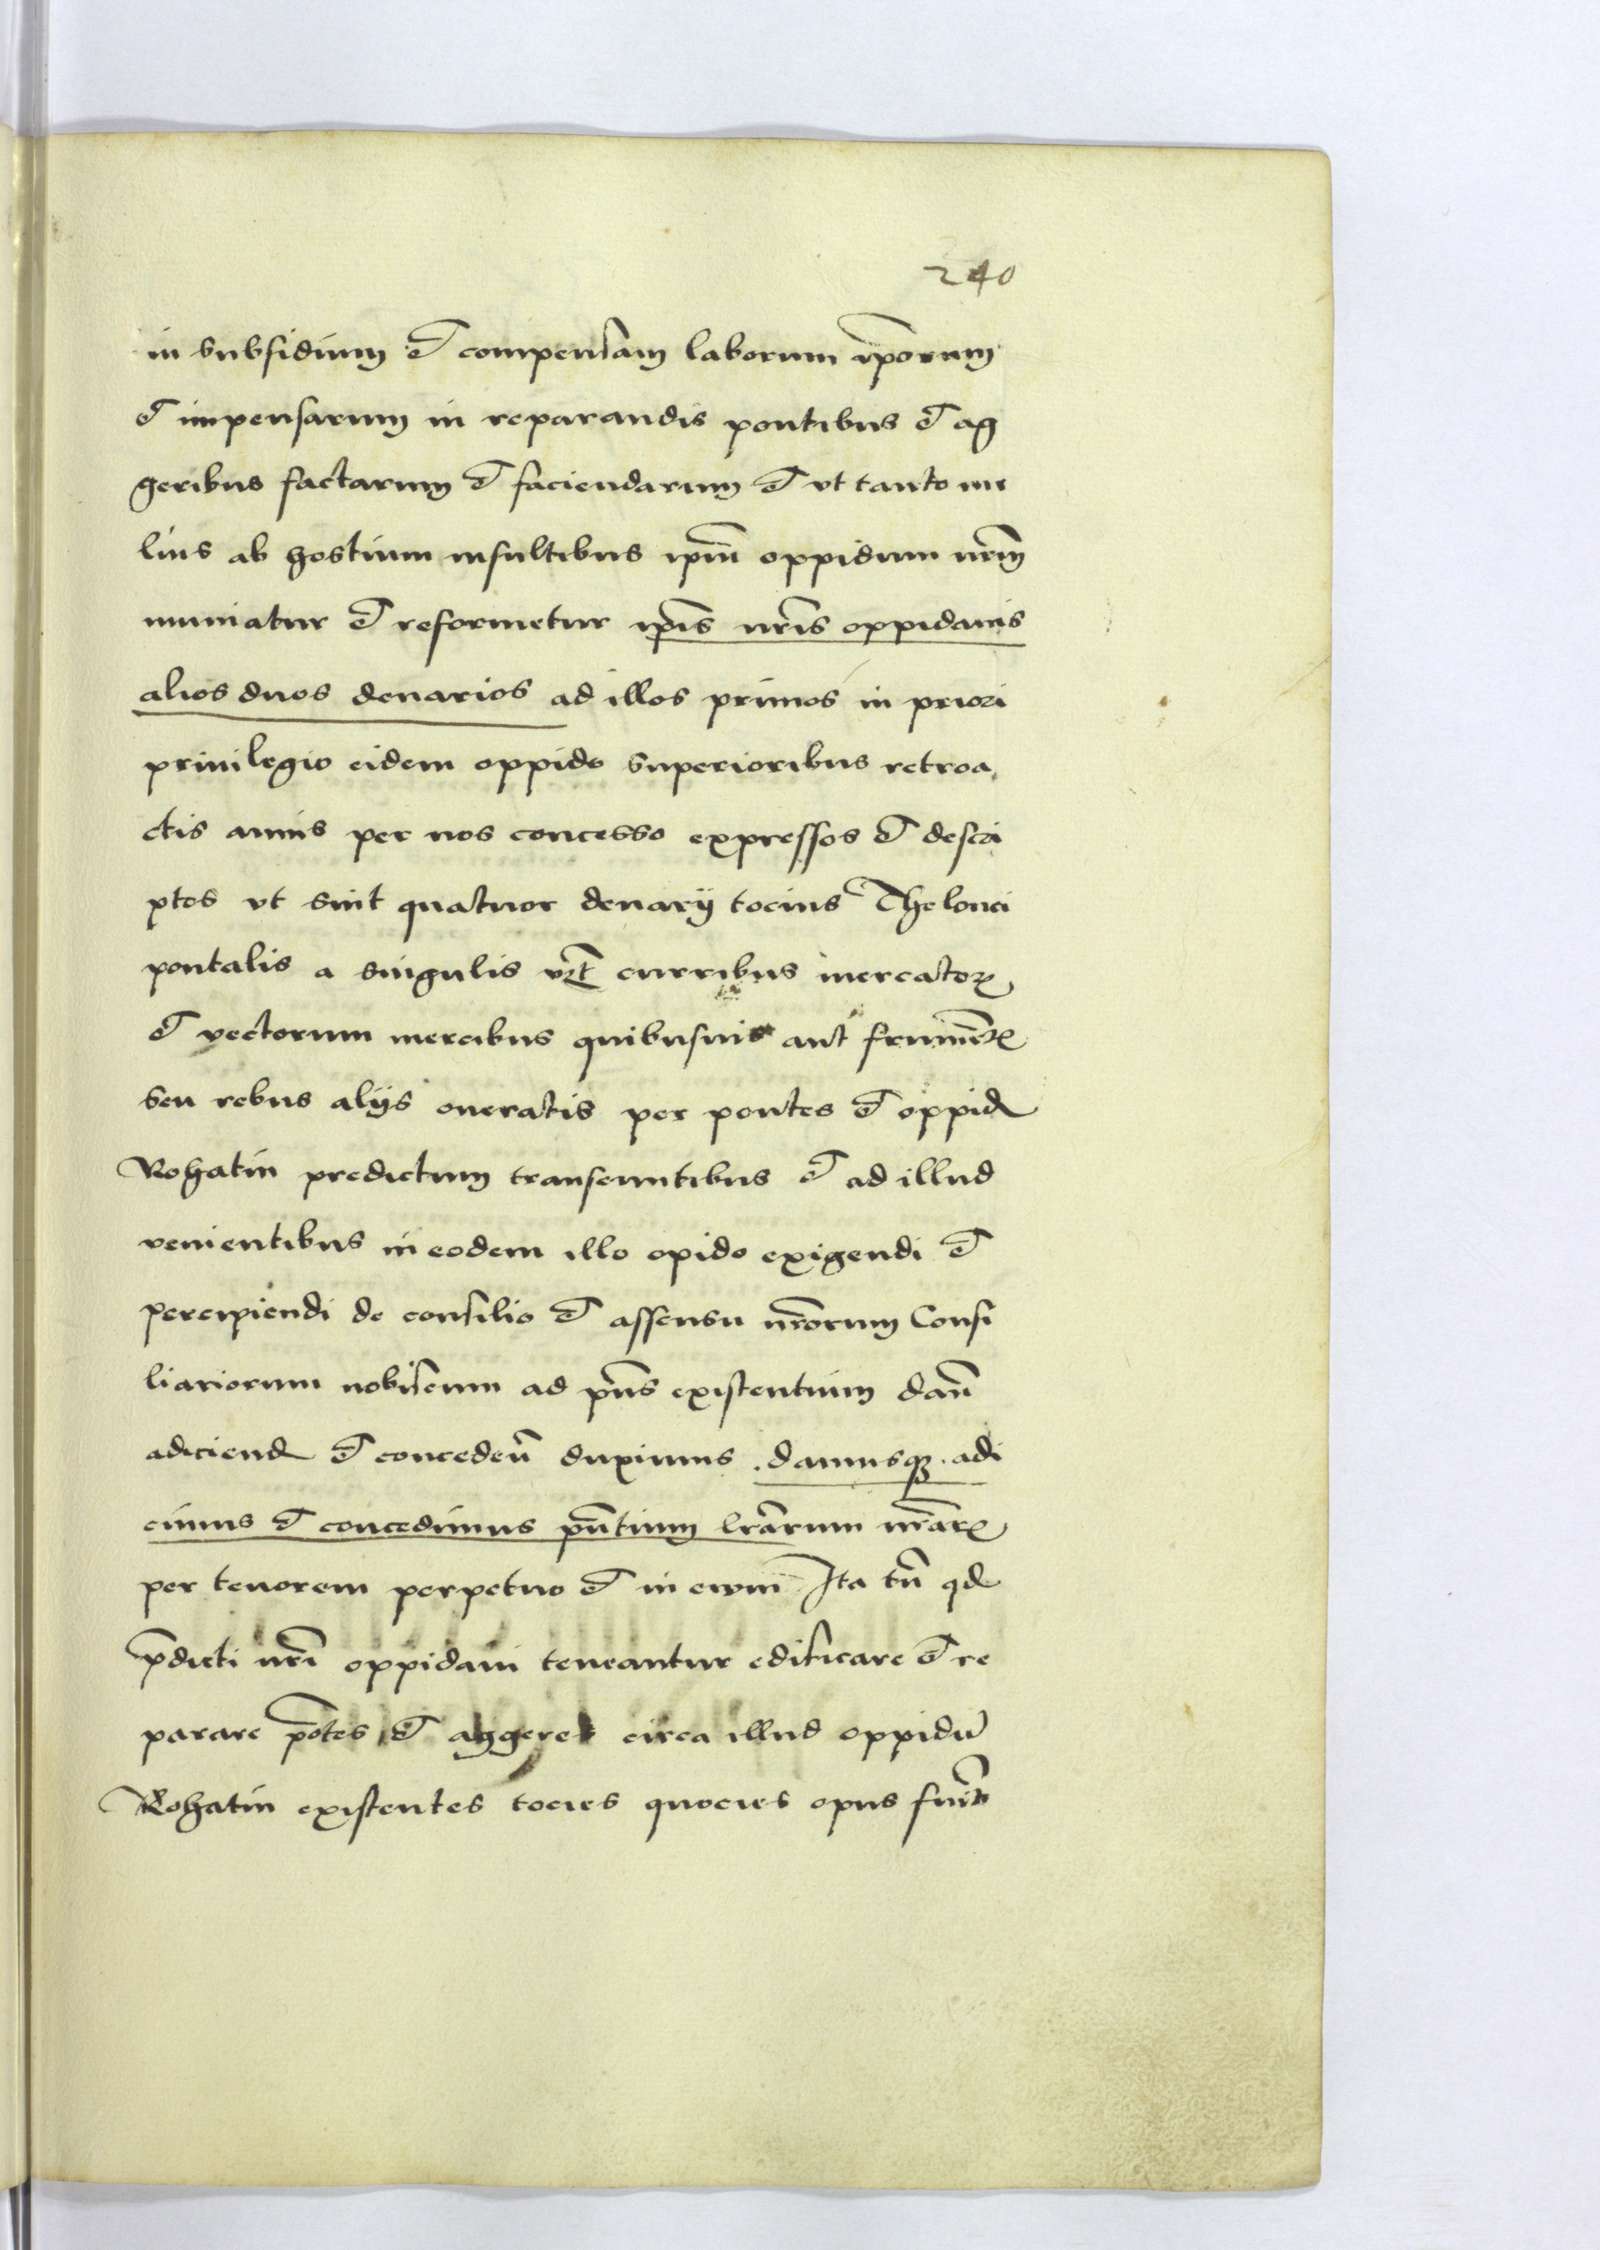 240
in subsidium et compensam laborum ip̄orum
et impensarum in reparandis pontibus et ag
geribus factarum et faciendarum et vt tanto me
lius ab hostium insultibus ip̄m oppidum nr̄m
muniatur et reformetur ip̄is nr̄is oppidanis
alios duos denarios ad illos primos in priori
priuilegio eidem oppido superioribus retroa
ctis annis per nos concesso expressos et descri
ptos vt sint quatuor denarij tocius Thelonei
pontalis a singulis vt curribus mercatorꝝ
et vectorum mercibus quibusuis aut frumentꝝ
seu rebus alijs oneratis per pontes et oppid
Rohatin predictum transeuntibus et ad illud
venientibus in eodem illo opido exigendi et
percipiendi de consilio et assensu nr̄orum Consi
liariorum nobiscum ad pn̄s existentium dan̄
adiciend et conceden̄ duximus . damusqꝫ . adi
cimus et concedimus pn̄tium lr̄arum nr̄arꝝ
per tenorem perpetuo et in ewm Ita tn̄ qd
p̄dicti nr̄i oppidani teneantur edificare et re
parare pōtes et aggeres circa illud oppidū
Rohatin existentes tocies quocies opus fuerit